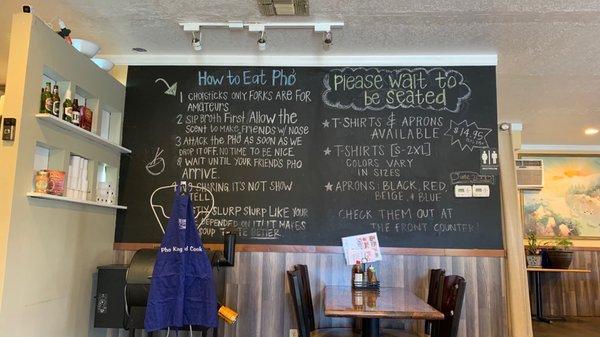 How to Eat Pho
1 Chopsticks only Forks are for
Amateurs
2 Sip Broth First Allow the
Scent to make friends w/ nose
3 Attack the Pho as soon as we
drop it off. No time to be nice.
8 wait until your friends Pho
arrive.
sharing it's not show
tell
Slurp Slurp like your
depended on it makes
soup taste better.
Please wait to
be seated
★ T-Shirts & Aprons
Available
$14.95
★ T-Shirts [S-2XL]
Colors vary
in sizes
★ Aprons: Black, Red,
Beige, & Blue
Check them out at
the front counter!
Pho King Cook